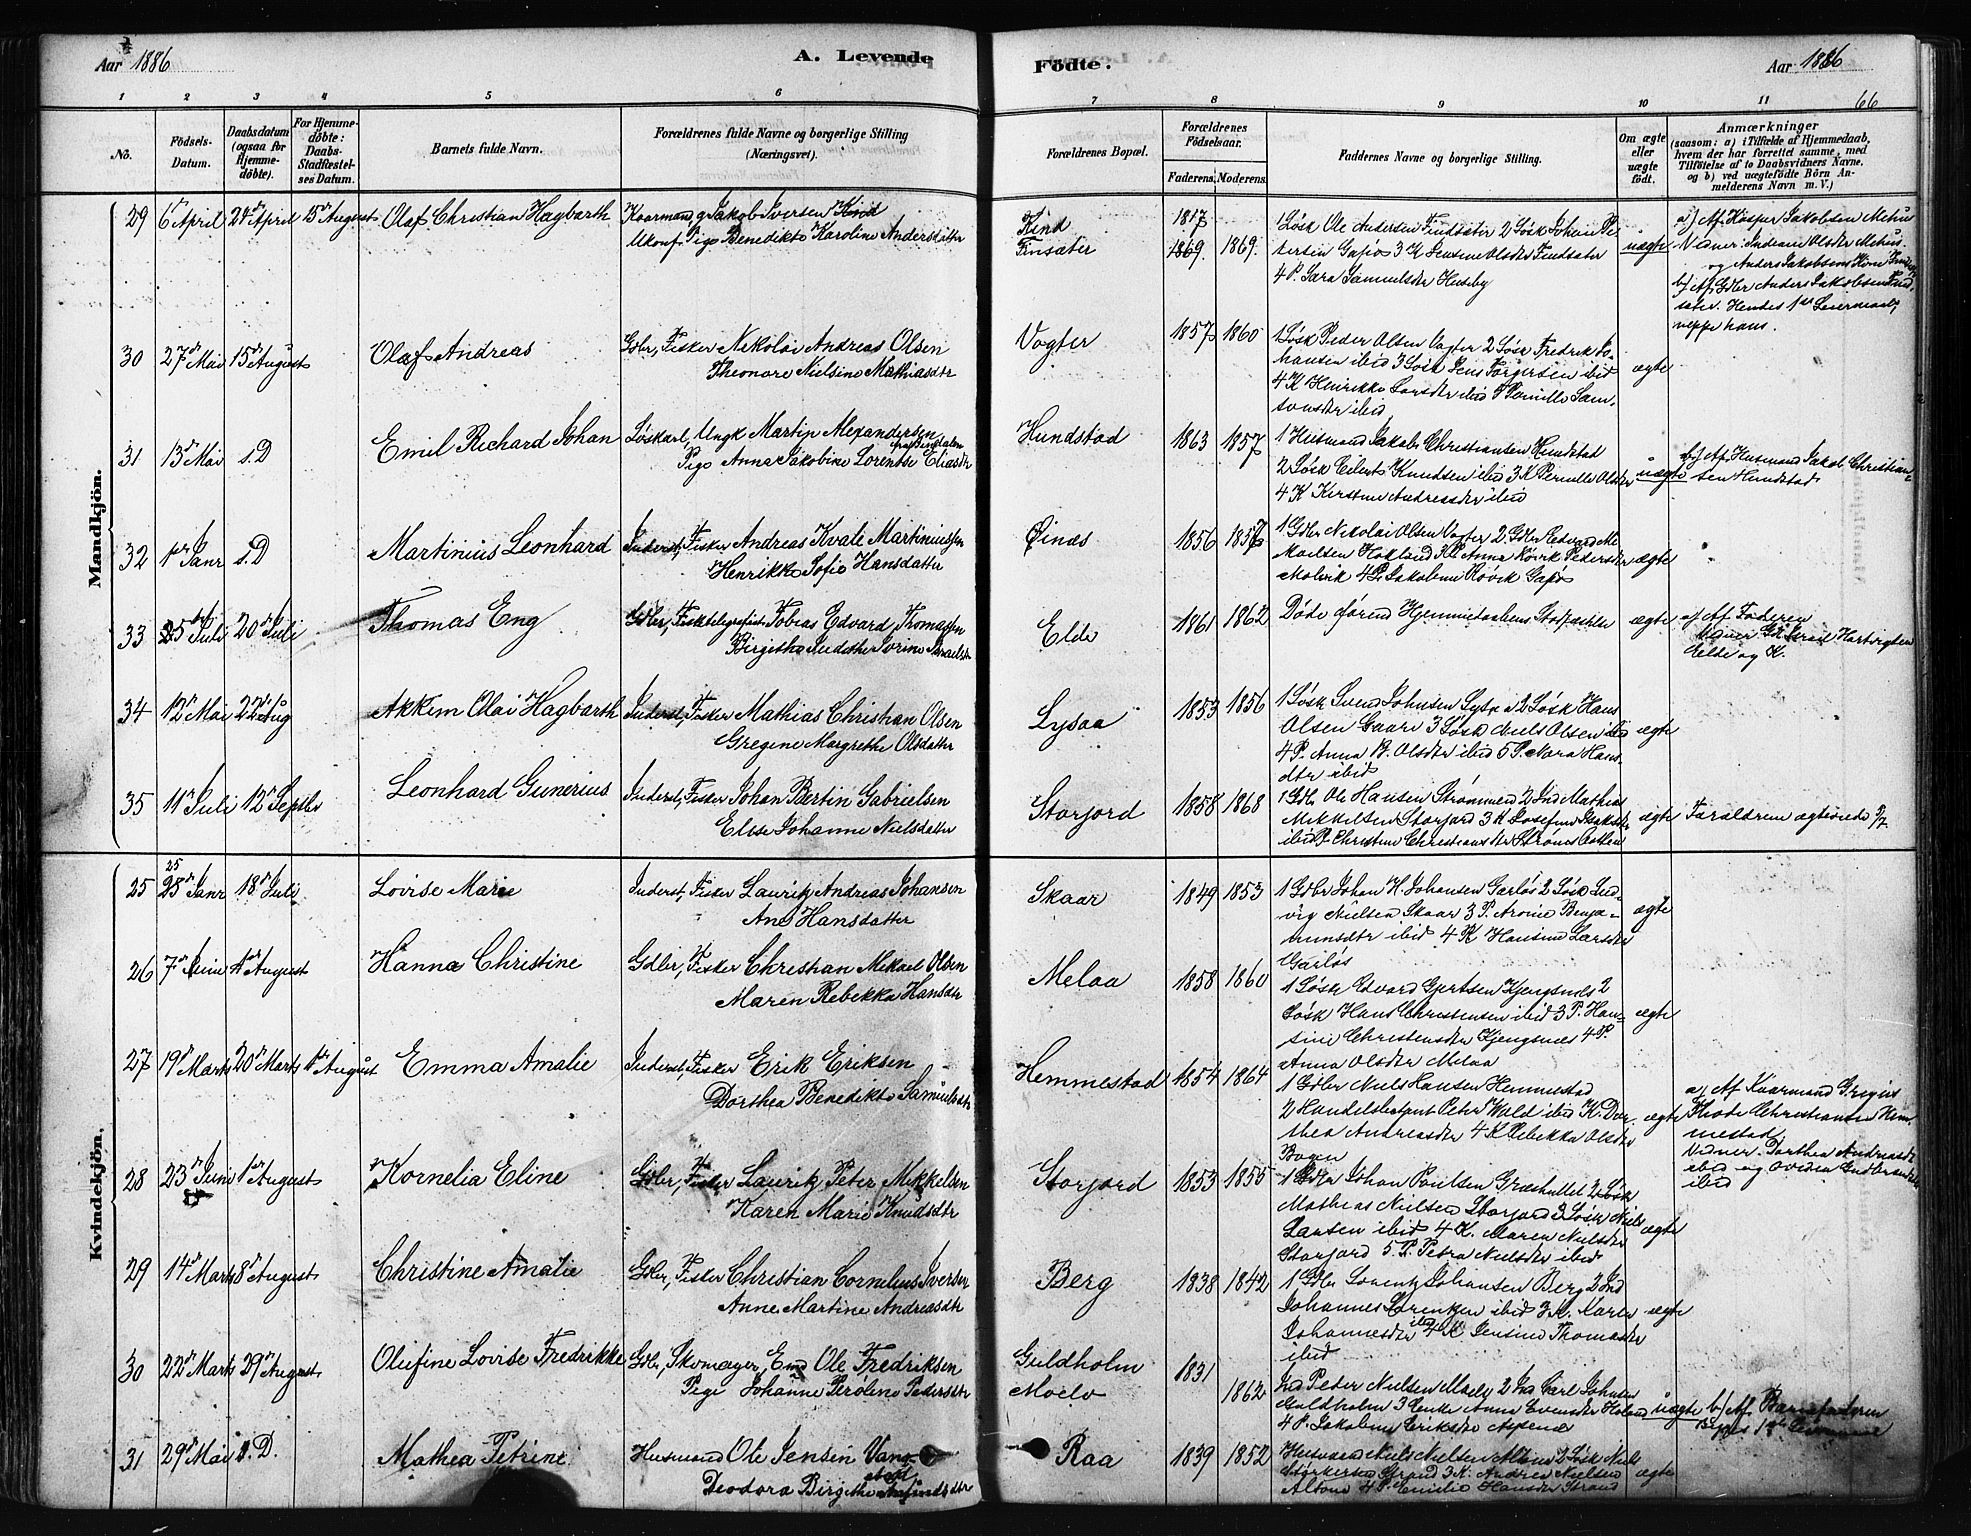 Aar 1886
A. Levende
Fødte.
Aar 1886
66
1 2 3 4 5 6 7 8 9 10 11
No.
Födsels-
Datum.
Daabsdatum
(ogsaa for
Hjemme-
döbte).
For Hjemme-
döbte:
Daabs-
Stadfæstel-
ses Datum.
Barnets fulde Navn.
Forældrenes fulde Navne og borgerlige Stilling
(Næringsvei).
Forældrenes Bopæl.
Forældrenes
Födselsaar.
Faderens. Moderens.
Faddernes Navne og borgerlige Stilling.
Om ægte
eller
uægte
födt.
Anmærkninger
(saasom: a) i Tilfælde af Hjemmedaab,
hvem der har forrettet samme, med
Tilföielse af to Daabsvidners Navne,
og b) ved uægtefödte Börn An-
melderens Navn m. V.)
Mandkjön.
29 6 April 24 April 15 August Olaf Christian Hagbarth
Kaarmand, g Jakob Iversen Kind
Ukonf. Pige Benedikte Karoline Andersdatter
Kind
Finsæter
1817
1869. 1869.
1 Løsk Ole Andersen Findsæter 2 Løsk Johan Pe-
tersen Gapøs 3 K Jensine Olsdtr Findsæter
4 P. Sara Samuelsdtr Huseby
uægte
a) Af Kasper Jakobsen Mehus
og Anders Jakobsens Kone
b) Af Gdbr Anders Jakobsen Find-
sæter. Hendes 1ste Leiermaal,
neppe hans.
30 27 Mai 15 August Olaf Andreas
Gdbr, Fisker Nikolai Andreas Olsen
Theonore Nielsine Mathiasdtr
Vogter 1857 1860
1 Løsk Peder Olsen Vogter 2 Løsk Fredrik Jo-
hansen ibid 3 Løsk Jens Torgersen ibid
4 K Henrikke Larsdtr ibid 5 Pernille Sam-
sonsdtr ibid
ægte
31 13 Mai s.D Emil Richard Johan
Løskarl, Ungk Martin Alexandersen
fra Bindalen
Pige Anna Jakobine Lorentse Eliasdtr
Hundstad 1863 1857
1 Husmand Jakob Christiansen Hundstad
2 Løsk Eilert Knudsen ibid 3 K Pernille Olsdtr
4 K Kirstine Andreasdtr ibid
uægte
b) Af Husmand Jakob Christian-
sen Hundstad
32 1 Janr s.D Martinius Leonhard
Inderst, Fisker Andreas Kvale Martiniussen
Henrikke Sofie Hansdatter
Øinæs 1856 1857
1 Gdbr Nikolai Olsen Vogter 2 Gdbr Edvard Mi-
kaelsen Hokland 3 P Anna Røvik Pedersdtr
Molvik 4 P. Jakobine Røvik Gapøs
ægte
33 25 Juli 20 Juli Thomas Eng
Gdbr, Fisk, telegrafist Tobias Edvard Thomassen
Birgithe Judithe Jorine Israelsdtr
Elde 1861 1862
Døde førend Hjemmedaabens Stadfæstelse
ægte
a) Af Faderen
Vidner Gdbr Israel Hartvigsen
Elde og K.
34 12 Mai 22 Aug Akkim Olai Hagbarth
Inderst, Fisker Mathias Christian Olsen
Gregine Margrethe Olsdatter
Lysaa 1853 1856
1 Løsk Svend Johnsen Lysaa 2 Løsk Hans
Olsen Gaare 3 Løsk Niels Olsen ibid
4 P. Anna B. Olsdtr ibid 5 P. Mara Hans-
dtr ibid
ægte
35 11 Juli 12 Septbr Leonhard Gunerius
Inderst, Fisker Johan Bertin Gabrielsen
Elise Johanne Nielsdatter
Storjord 1858 1868
1 Gdbr Ole Hansen Strømnes 2 Ind Mathias
Mikkelsen Storjord 3 K Josefine Isaksdtr
ibid P. Christine Christiansdtr
ægte
Forældrene ægteviede
Kvindekjön.
25
25 28 Janr 18 Juli Lovise Marie
Inderst, Fisker Lauritz Andreas Johansen
Ane Hansdatter
Skaar 1849 1853
1 Gdbr Johan H. Johansen Garløs 2 Løsk Lud-
vig Nielsen Skaar 3 P. Aronie Benja-
minsdtr ibid 4 K Hansine Larsdtr
Garløs
ægte
26 7 Juni 1 August Hanna Christine
Gdbr, Fisker Christian Mikael Olsen
Maren Rebekka Hansdtr
Melaa 1858 1860
1 Løsk Edvard Gjertsen Kjengsnes 2
Løsk Hans Christensen ibid 3 P. Han-
sine Christensdtr Kjengsnes 4 P.
Anna Olsdtr Melaa
ægte
27 19 Marts 20 Marts 1 August Emma Amalie
Inderst, Fisker Erik Eriksen
Dorthea Benedikte Samuelsdtr
Hemmestad 1854 1864
1 Gdbr Niels Hansen Hemmestad
2 Handelsbetjent Peter Wold ibid K. Dor-
thea Andreasdtr 4 K Rebekka Olsdtr
Bogen
ægte
a) Af Kaarmand Gregius
Thode Christiansen Hem-
mestad.
Vidner. Dorthea Andreasdtr
ibid og
ibid
28 23 Juni 1 August Kornelia Eline
Gdbr, Fisker Lauritz Peter Mikkelsen
Karen Marie Knudsdtr
Storjord 1853 1855
1 Gdbr Johan Paulsen Græshullet 2 Løsk
Mathias Nielsen Storjord 3 Løsk Niels
Larsen ibid 4 K. Maren Nielsdtr
Storjord 5 P. Petra Nielsdtr ibid
ægte
29 14 Marts 8 August Christine Amalie
Gdbr, Fisker Christian Cornelius Iversen
Anne Martine Andreasdtr
Berg 1838 1842
1 Gdbr Lorentz Johansen Berg 2 Ind
Johannes Lorentzen ibid 3 K. Karen
Johannesdtr ibid 4 K Jensine Thomasdtr
ibid
ægte
30 22 Marts 29 August Olufine Lovise Fredrikke
Gdbr, Skomager, Enk Ole Fredriksen
Pige Johanne Peroline Pedersdtr
Guldholm
Moelv
1831
1862
Ind Peter Nielsen Moelv 2 Ind Carl Johnsen
Guldholm 3 Enke Anna Evensdtr Holand
4 P. Jakobine Eriksdtr Aspenæs
uægte
b) Af Barnefaderen
Begges 1ste Leiermaal
31 29 Mai s.D. Mathea Petrine
Husmand Ole Jensen Vang-
stad
Deodora Birgithe
Raa 1839 1852
Husmand Niels Nielsen Altone 2 Løsk Niels
Størkersen Strand 3 K. Andrea Nielsen
Altone 4 P. Emilie Hansdtr Strand
ægte